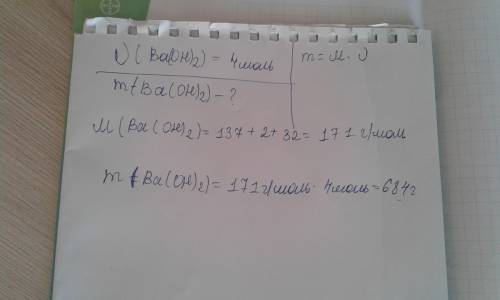 υ(Ba(OH)₂) = 4моль | m = M · υ
m(Ba(OH)₂) - ?
M(Ba(OH)₂) = 137 + 2 + 32 = 171 г/мол
m(Ba(OH)₂) = 171 г/моль · 4моль = 684г